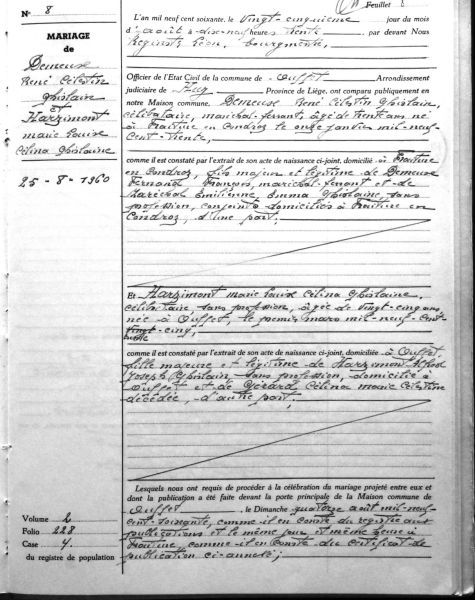 Feuillet 8
N° 8
MARIAGE
de
Demeuse
René Célestin
Ghislain
Et
Harzimont
marie Louise
Célina Ghislaine
25-8-1960
L'an mil neuf cent soixante, le vingt-cinquième jour du mois
d'août à dix-neuf heures trente par devant Nous
Léon, bourgmestre,
Officier de l'Etat Civil de la commune de Ouffet, Arrondissement
judiciaire de Huy Province de Liège, ont comparu publiquement en
notre Maison commune, Demeuse René Célestin Ghislain,
célibataire, maréchal-ferrant, âgé de trente ans né
à Fraiture en Condroz le onze janvier mil-neuf-
cent-trente,
comme il est constaté par l'extrait de son acte de naissance ci-joint, domicilié à Fraiture
en Condroz, fils majeur et légitime de Demeuse
Fernand François, maréchal-ferrant et de
Maréchal Emilienne Emma Ghislaine, sans
profession, conjoints domiciliés à Fraiture en
Condroz, d'une part;
Et Harzimont marie Louise Célina Ghislaine,
célibataire, sans profession, âgée de vingt-cinq ans
née à Ouffet, le premier mars mil-neuf-cent
vingt-cinq;
trente
comme il est constaté par l'extrait de son acte de naissance ci-joint, domiciliée à Ouffet,
fille majeure et légitime de Harzimont Alfred
Joseph Ghislain sans profession, domicilié à
Ouffet et de Gérard Célina marie Célestine
décédée, d'autre part;
Lesquels nous ont requis de procéder à la célébration du mariage projeté entre eux et
dont la publication a été faite devant la porte principale de la Maison commune de
Ouffet, le Dimanche quatorze août mil-neuf-
cent-soixante, comme il en conste du registre aux
publications et le même jour et même heure à
Fraiture, comme il en conste du certificat de
publication ci-annexé;
Volume 2
Folio 228
Case 4.
du registre de population